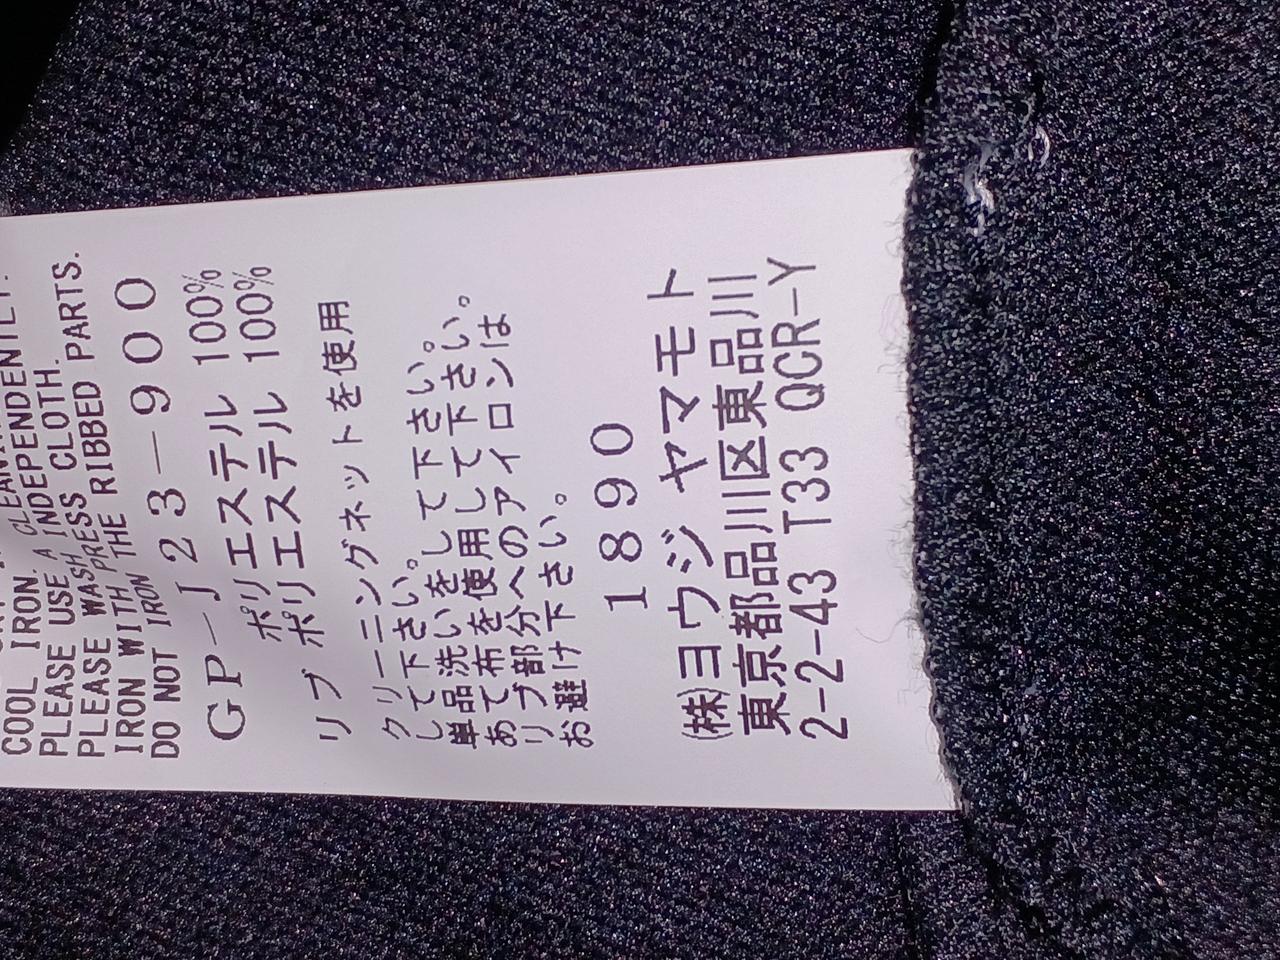 COOL IRON.
PLEASE USE A CLEANING
PLEASE WASH INDEPENDENTLY.
IRON WITH PRESS CLOTH.
DO NOT IRON THE RIBBED PARTS.
GP-J23-900
ポリエステル 100%
リブ ポリエステル 100%
クリーニングネットを使用
して下さい。
単品洗いをして下さい。
あて布を使用して下さい。
リブ部分へのアイロンは
お避け下さい。
1890
(株)ヨウジ ヤマモト
東京都品川区東品川
2-2-43 T33 QCR-Y